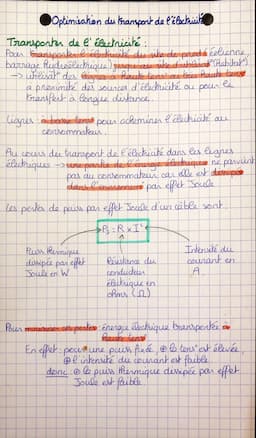 Optimisation du transport de l'électricité
Transporter de l'électricité :
Pour transporter l'électricité du site de prod° (éolienne,
barrage hydroélectrique) jusqu'au site d'utilisat° (habitat)
→ utilisat° des lignes à Haute tens° ou très Haute tens°
à proximité des sources d'électricité ou pour le
transfert à longue distance.
Lignes à basse tens° pour acheminer l'électricité au
consommateur.
Au cours du transport de l'électricité dans les lignes
électriques → une partie de l'énergie électrique ne parvient
pas au consommateur car elle est
par effet Joule
Les pertes de puiss par effet Joule d'un câble sont
Pj = R x I²
Puiss thermique
dissipée par effet
Joule en W
Résistance du
conducteur
électrique en
ohms (Ω)
Intensité du
courant en
A
Pour minimiser les pertes énergie électrique transportée à
Haute tens°
En effet : pour une puiss fixée, ⊕ la tens° est élevée,
⊕ l'intensité du courant est faible
donc ⊕ la puiss thermique dissipée par effet
Joule est faible.